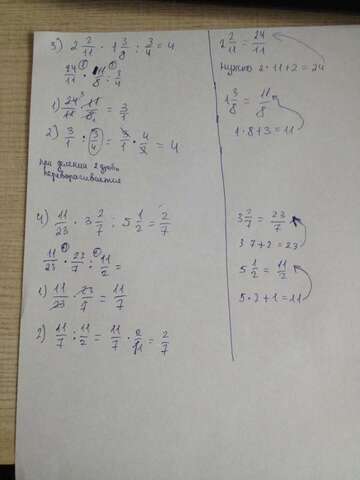 3) 2 2/11 · 1 3/8 : 3/4 = 4
24/11 · 11/8 : 3/4
1) 24/11 · 11/8 = 3/1
2) 3/1 : 3/4 = 3/1 · 4/3 = 4
при делении 2 дробь
переворачивается
4) 11/23 · 3 2/7 : 5 1/2 = 2/7
11/23 · 23/7 : 11/2 =
1) 11/23 · 23/7 = 11/7
2) 11/7 : 11/2 = 11/7 · 2/11 = 2/7
2 2/11 = 24/11
нужно 2 · 11 + 2 = 24
1 3/8 = 11/8
1 · 8 + 3 = 11
3 2/7 = 23/7
3 7 + 2 = 23
5 1/2 = 11/2
5 · 2 + 1 = 11